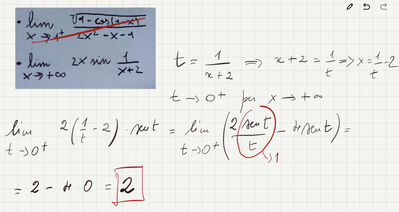 • lim x→1⁺ √(1 - cos(1-x)) / (2x² - x - 1)
• lim x→+∞ 2x sin 1/(x+2)
t = 1/(x+2) ⟹ x+2 = 1/t => x = 1/t - 2
t → 0⁺ per x → +∞
lim t→0⁺ 2(1/t - 2) · sen t = lim t→0⁺ (2 sen t / t - 4 sen t) =
→1
= 2 - 4 · 0 = 2